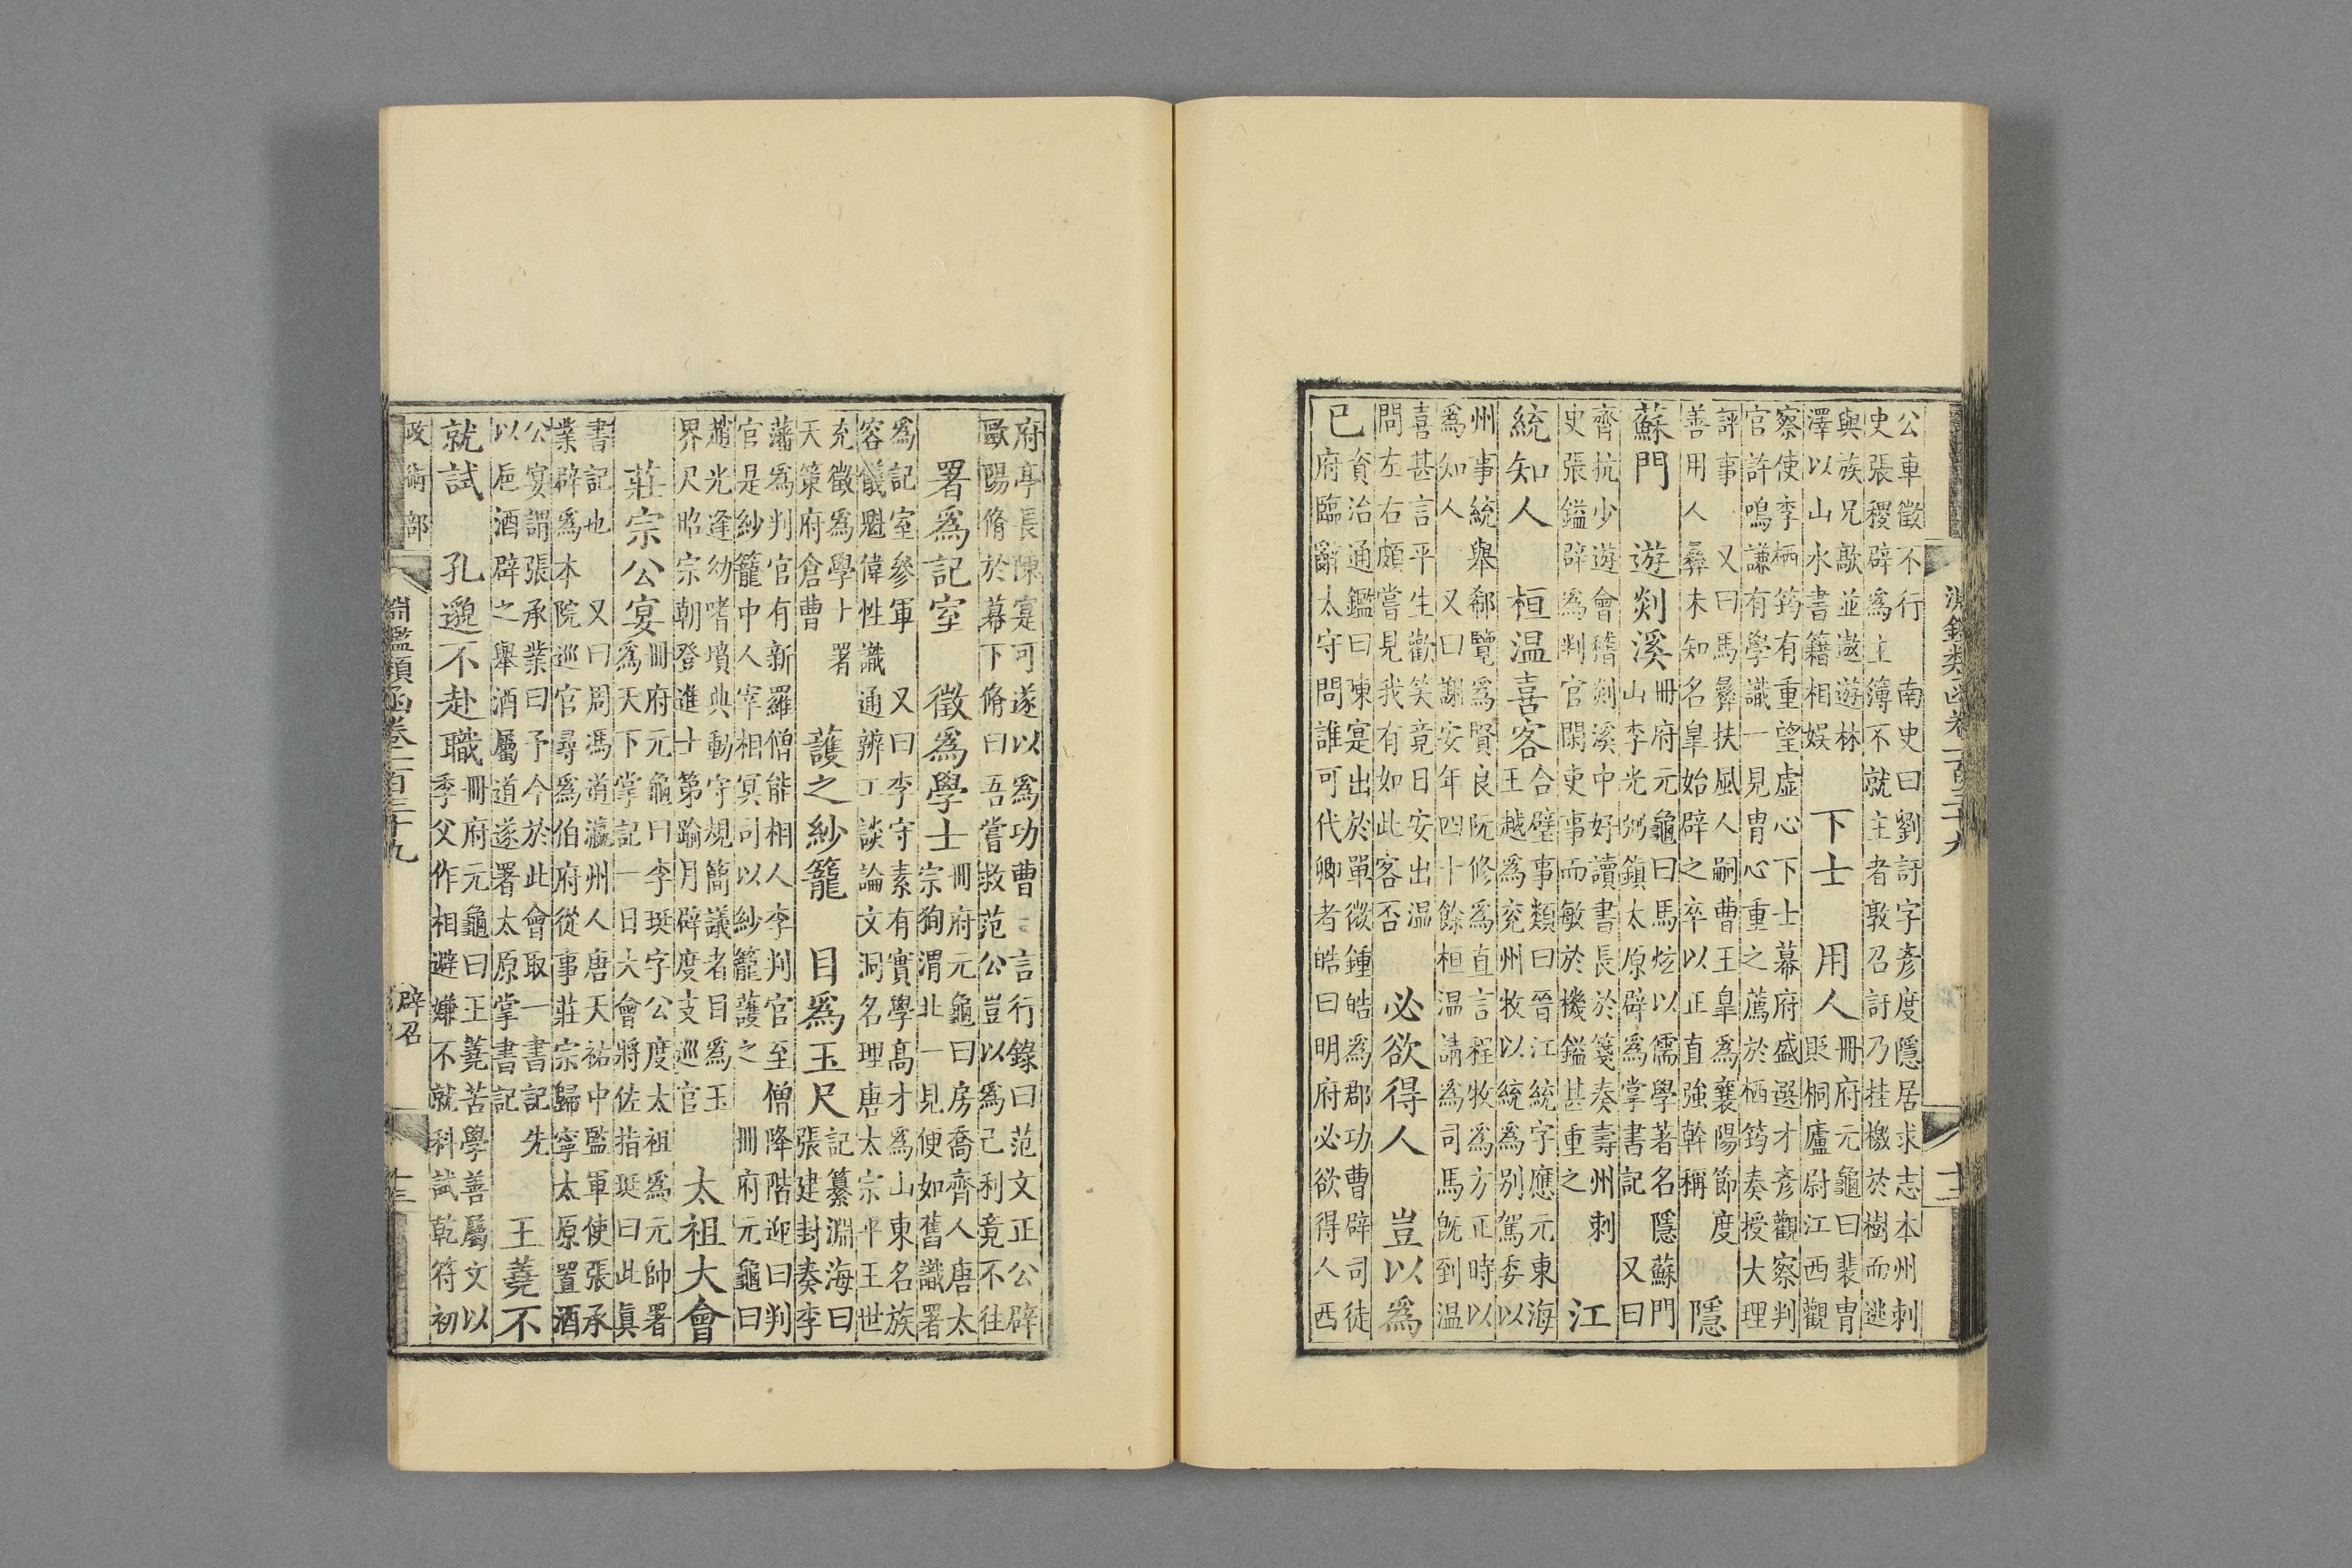 淵鑑類函卷一百三十九
十二
公車徵不行　南史曰劉訏字彥度隱居求志本州刺
史張稷辟爲主簿不就主者敦召訏乃挂檄於樹而逃
與族兄歊並遨遊林
澤以山水書籍相娛
下士　用人
冊府元龜曰裴冑
貶桐廬尉江西觀
察使李栖筠有重望虛心下士幕府盛選才彥觀察判
官許鳴謙有學識一見冑心重之薦於栖筠奏授大理
評事　又曰馬彝扶風人嗣曹王皐爲襄陽節度
善用人彝未知名皐始辟之卒以正直強幹稱
隱
蘇門　遊剡溪
冊府元龜曰馬炫以儒學著名隱蘇門
山李光弼鎮太原辟爲掌書記　又曰
齊抗少遊會稽剡溪中好讀書長於箋奏壽州刺
史張鎰辟爲判官閑吏事而敏於機鑑甚重之
江
統知人　桓温喜客
合璧事類曰晉江統字應元東海
王越爲兗州牧以統爲別駕委以
州事統舉郗覽爲賢良阮修爲直言程牧爲方正時以
爲知人　又曰謝安年四十餘桓温請爲司馬旣到温
喜甚言平生歡笑竟日安出温
問左右頗嘗見我有如此客否
必欲得人　豈以爲
已
資治通鑑曰陳寔出於單微鍾皓爲郡功曹辟司徒
府臨辭太守問誰可代卿者皓曰明府必欲得人西
府亭長陳寔可遂以爲功曹　言行錄曰范文正公辟
歐陽脩於幕下脩曰吾嘗救范公豈以爲己利竟不往
署爲記室　徵爲學士
冊府元龜曰房喬齊人唐太
宗狥渭北一見便如舊識署
爲記室參軍　又曰李守素有實學高才爲山東名族
容儀魁偉性識通辨口談論文洞名理唐太宗平王世
充徵爲學士署
天策府倉曹
護之紗籠　目爲玉尺
記纂淵海曰
張建封奏李
藩爲判官有新羅僧能相人李判官至僧降階迎曰判
官是紗籠中人宰相冥司以紗籠護之　冊府元龜曰
趙光逢幼嗜墳典動守規簡議者目爲玉
界尺昭宗朝登進士第踰月辟度支巡官
太祖大會
莊宗公宴
冊府元龜曰李珽字公度太祖爲元帥署
爲天下掌記一日大會將佐指珽曰此眞
書記也　又曰周馮道瀛州人唐天祐中監軍使張承
業辟爲本院巡官尋爲伯府從事莊宗歸寧太原置酒
公宴謂張承業曰予今於此會取一書記先
以巵酒辟之舉酒屬道遂署太原掌書記
王蕘不
就試　孔邈不赴職
冊府元龜曰王蕘苦學善屬文以
季父作相避嫌不就科試乾符初
政術部
淵鑑類函卷一百三十九
辟召
十三